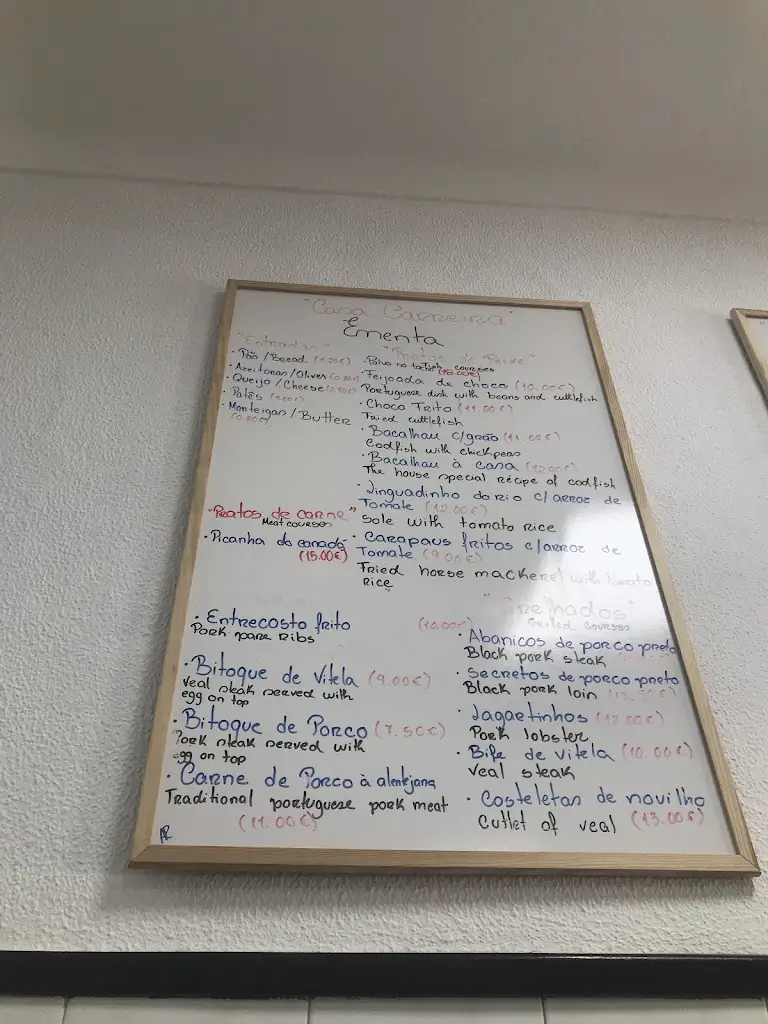 "Casa Carreira"
Ementa
"Entradas"
· Pão / Bread
· Azeitonas / Olives
· Queijo / Cheese
· Patês
· Manteigas / Butter
(0.80€)
"Pratos de carne"
Meat courses
· Picanha do canadá
(15.00€)
· Entrecosto frito
Pork spare Ribs
· Bitoque de Vitela (9.00€)
Veal steak served with
egg on top
· Bitoque de Porco (7.50€)
Pork steak served with
egg on top
· Carne de Porco à alentejana
Traditional portuguese pork meat
(11.00€)
"Pratos de Peixe"
courses
· Feijoada de choco (10.00€)
Portuguese dish with beans and cuttlefish
· Choco Frito (11.00€)
Fried cuttlefish
· Bacalhau c/grão (11.00€)
Codfish with chickpeas
· Bacalhau à casa
The house special recipe of codfish
· Linguadinho do rio c/ arroz de
Tomate (12.00€)
Sole with tomato rice
· Carapaus fritos c/arroz de
Tomate (9.00€)
Fried horse mackerel with tomato
Rice
"Grelhados"
Grilled courses
· Abanicos de porco preto
Black pork steak
· Secretos de porco preto
Black pork loin
· Lagartinhos (12.00€)
Pork lobster
· Bife de vitela (10.00€)
Veal steak
· Costeletas de novilho
Cutlet of veal (13.00€)